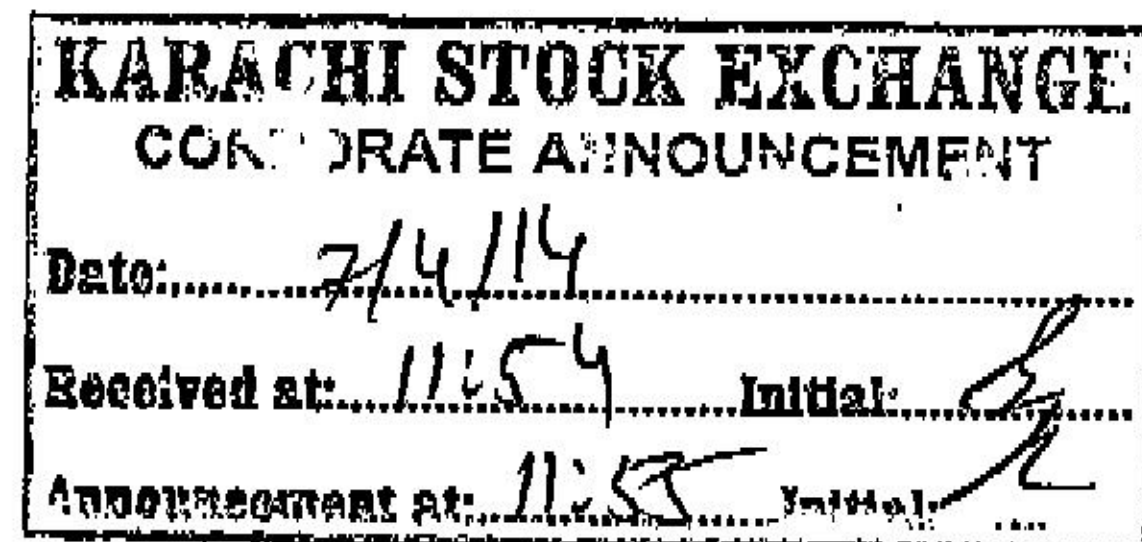 KARACHI STOCK EXCHANGE
CORPORATE ANNOUNCEMENT
Date: 7/4/14
Received at: 11:54 Initial:
Announcement at: 11:55 Initial: